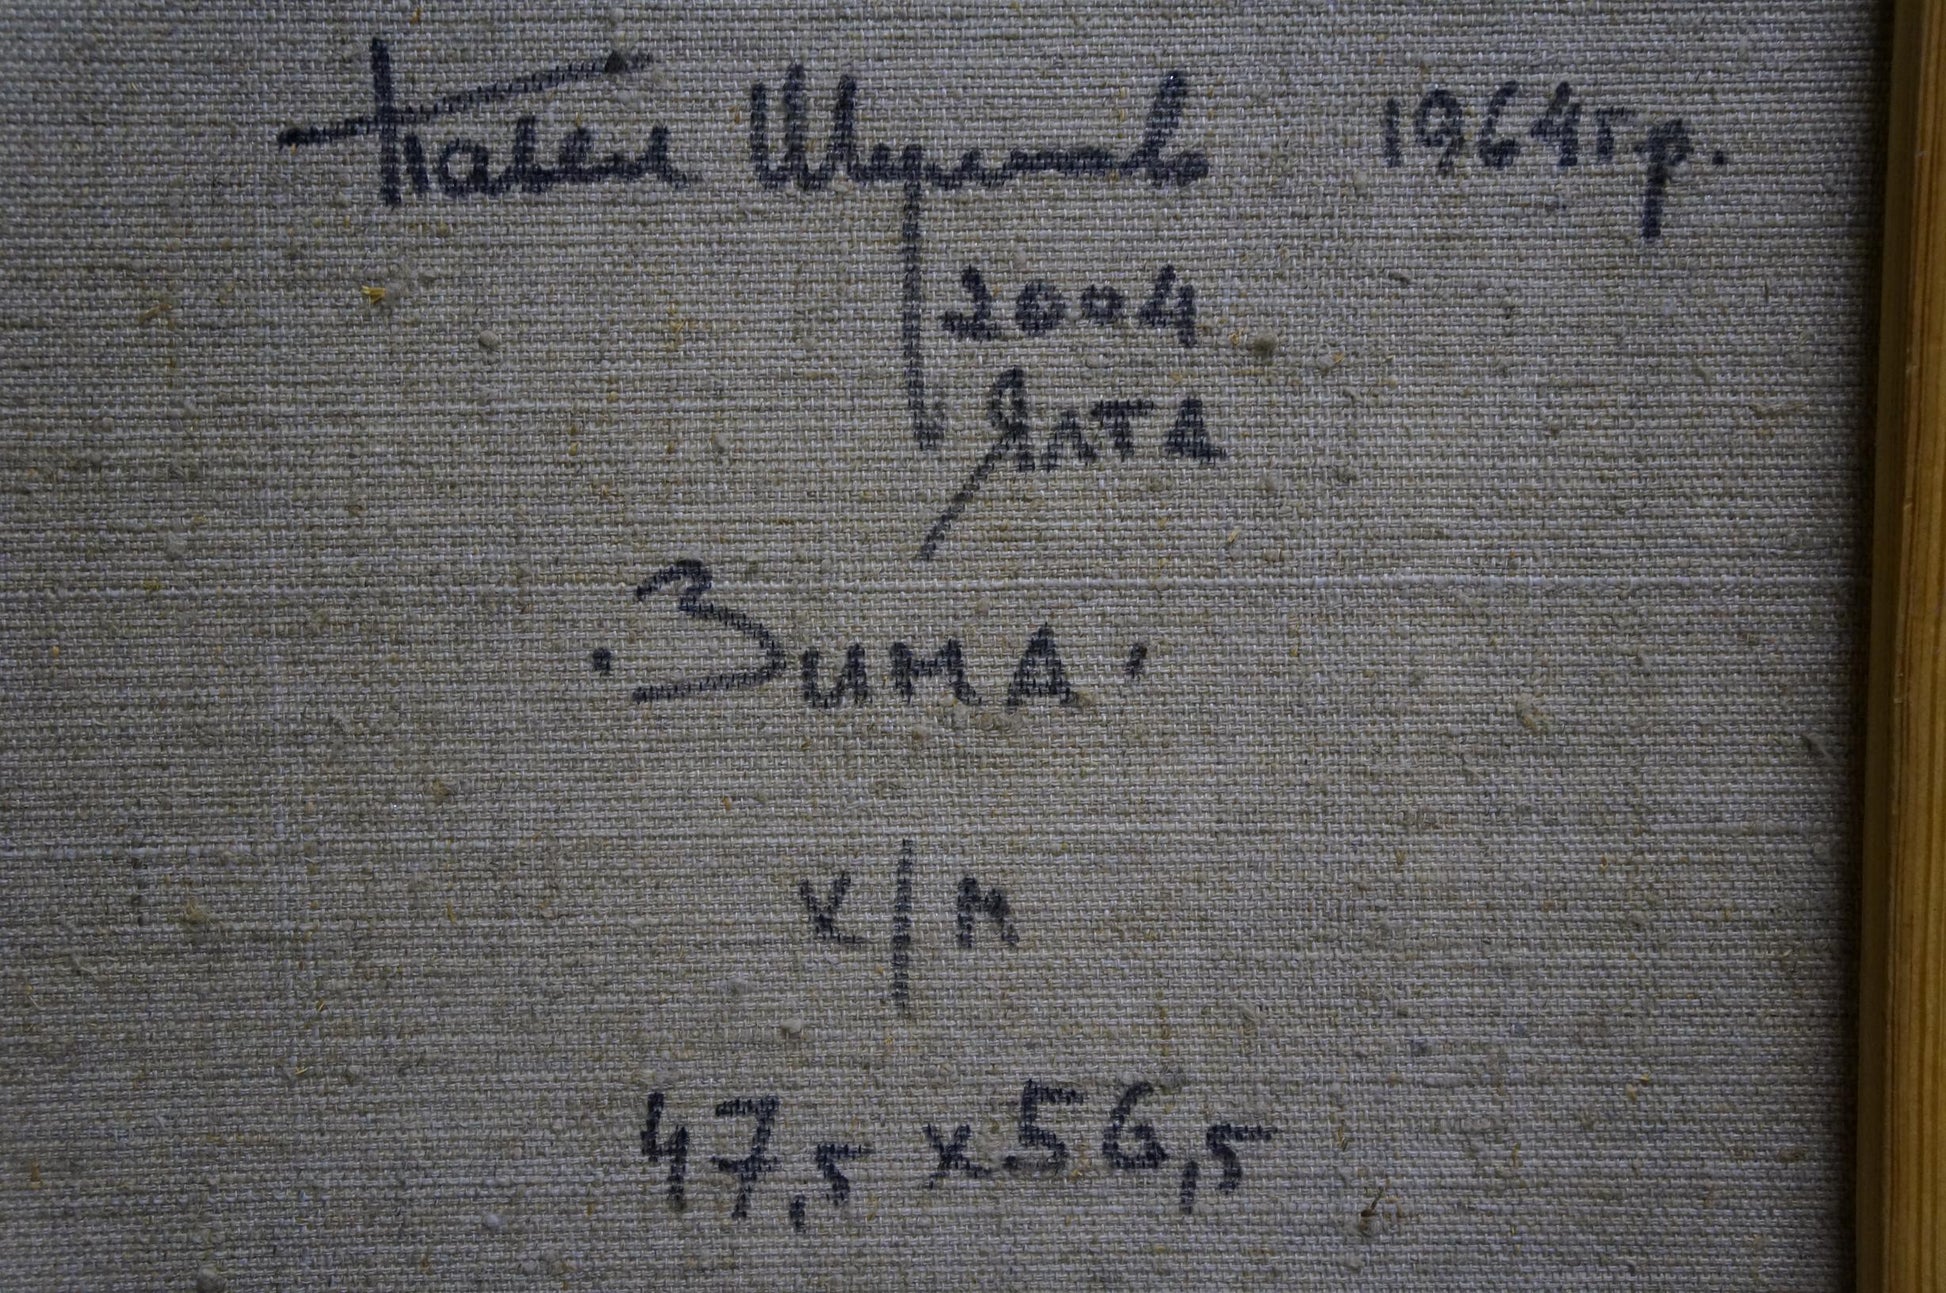 Павел Шумов 1964г р.
2004
Ялта
·Зима·
х/м
47,5 х 56,5